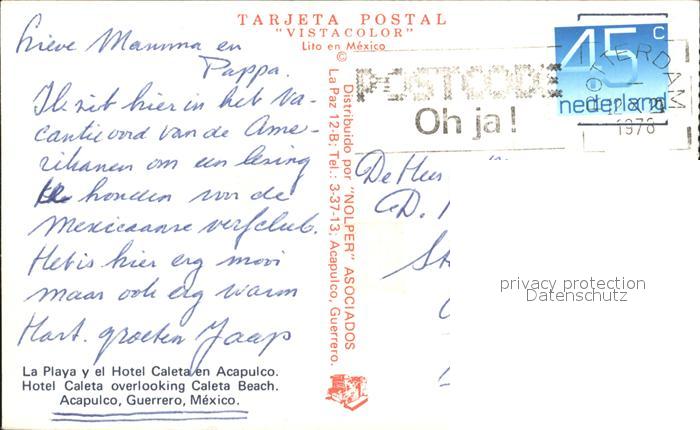 TARJETA POSTAL
"VISTACOLOR"
Lito en México
©
Lieve Mamma en
Pappa.
Ik zit hier in het va-
cantieoord van de Ame-
rikanen om een lezing
te houden voor de
Mexicaanse verfclub.
Het is hier erg mooi
maar ook erg warm
Hart. groeten Jaap
La Playa y el Hotel Caleta en Acapulco.
Hotel Caleta overlooking Caleta Beach.
Acapulco, Guerrero, México.
Distribuido por "NOLPER" ASOCIADOS
La Paz 12-B; Tel.: 3-37-13; Acapulco, Guerrero.
POSTCODE
Oh ja!
45 c
nederland
ROTTERDAM
1978
De Heer
D.
privacy protection
Datenschutz